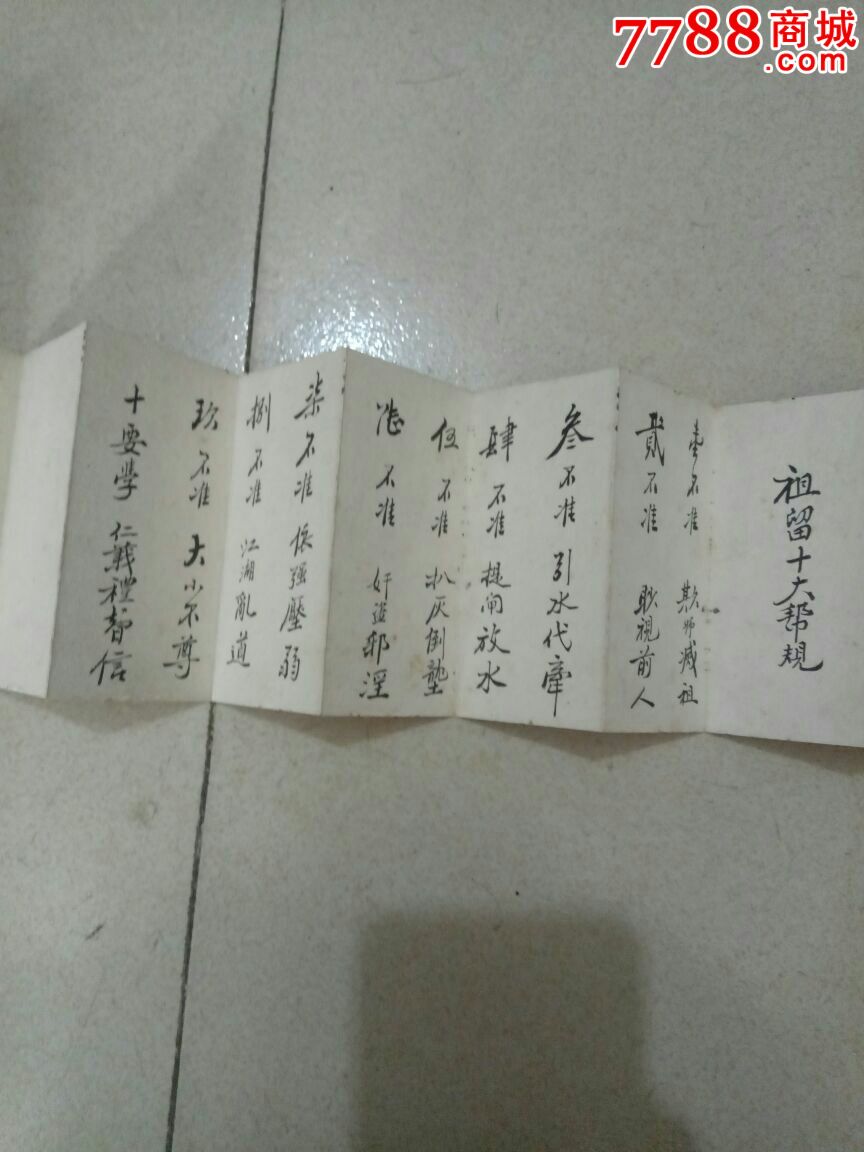 7788商城
.com
祖留十大帮規
壹不准 欺师减祖
貳不准 耿視前人
叁不准 引水代牽
肆不准 提闸放水
伍不准 扒灰倒墊
不准 奸盗邪淫
柒不准 强壓弱
捌不准 江湖亂道
玖不准 大小不尊
十要學 仁義禮智信